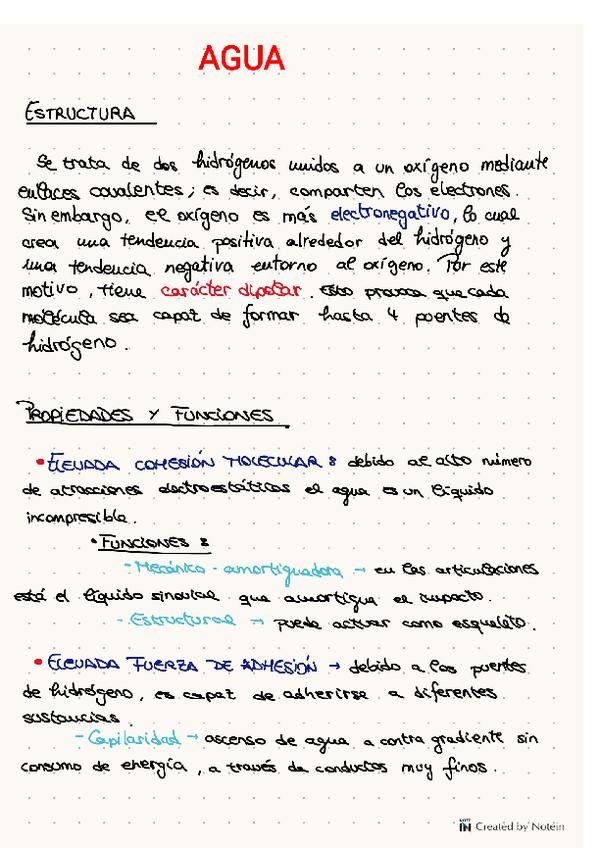 AGUA
ESTRUCTURA
Se trata de dos hidrógenos unidos a un oxígeno mediante
enlaces covalentes; es decir, comparten los electrones.
Sin embargo, el oxígeno es más electronegativo, lo cual
crea una tendencia positiva alrededor del hidrógeno y
una tendencia negativa entorno al oxígeno. Por este
motivo, tiene carácter dipolar. Esto provoca que cada
molécula sea capat de formar hasta 4 puentes de
hidrógeno.
PROPIEDADES Y FUNCIONES
• ELEVADA COHESIÓN MOLECULAR: debido al alto número
de atracciones electroestáticas el agua es un líquido
incompresible.
• FUNCIONES:
- Mecánico - amortiguadora → en las articulaciones
está el líquido sinovial que amortigua el impacto.
- Estructural → puede actuar como esqueleto.
• ELEVADA FUERZA DE ADHESIÓN → debido a los puentes
de hidrógeno, es capat de adherirse a diferentes
sustancias.
- Capilaridad → ascenso de agua a contra gradiente sin
consumo de energía, a través de conductos muy finos.
IN Created by Notein